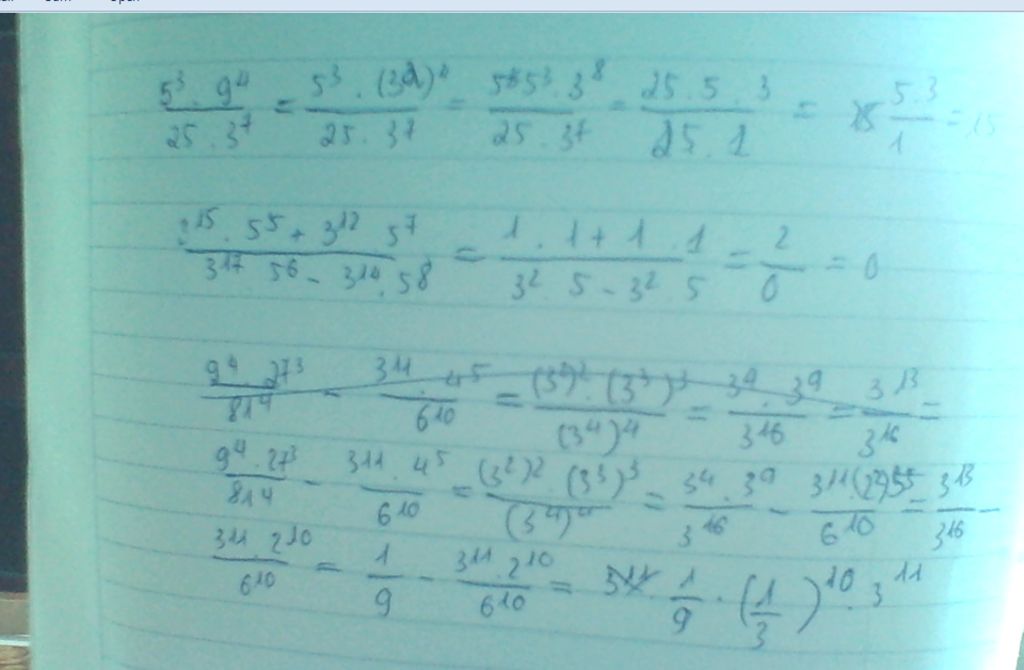 5³ · 9⁴ / 25 · 3⁷ = 5³ · (3²)⁴ / 25 · 3⁷ = 5³ · 3⁸ / 25 · 3⁷ = 25 · 5 · 3 / 25 · 1 = 5 · 3 / 1 = 15
¹⁵ · 5⁵ + 3¹² · 5⁷ / 3¹⁷ 5⁶ - 3¹⁴ · 5⁸ = 1 · 1 + 1 · 1 / 3² · 5 - 3² · 5 = 2 / 0 = 0
9⁴ · 27³ / 81⁴ - 3¹¹ · 4⁵ / 6¹⁰ = (3²)² · (3³)³ / (3⁴)⁴ = 3⁴ · 3⁹ / 3¹⁶ = 3¹³ / 3¹⁶ =
9⁴ · 27³ / 81⁴ - 3¹¹ · 4⁵ / 6¹⁰ = (3²)² · (3³)³ / (3⁴)⁴ = 3⁴ · 3⁹ / 3¹⁶ - 3¹¹ (2²)⁵ / 6¹⁰ = 3¹³ / 3¹⁶ -
3¹¹ · 2¹⁰ / 6¹⁰ = 1 / 9 - 3¹¹ · 2¹⁰ / 6¹⁰ = 1 / 9 · (1 / 3)¹⁰ · 3¹¹